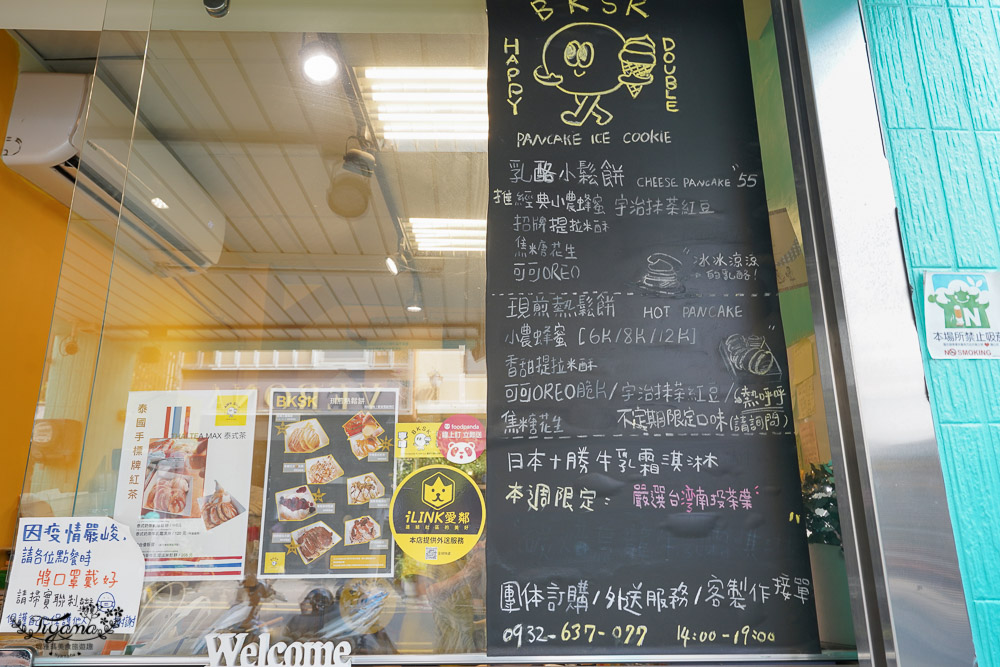 BKSK
HAPPY
DOUBLE
PANCAKE ICE COOKIE
乳酪小鬆餅 CHEESE PANCAKE 55
推 經典小農蜂蜜 宇治抹茶紅豆
招牌提拉米酥
焦糖花生
可可OREO
冰冰涼涼
的乳酪!
現煎熱鬆餅 HOT PANCAKE
小農蜂蜜 [6片/8片/12片]
香甜提拉米酥
可可OREO脆片/宇治抹茶紅豆/
熱呼呼
焦糖花生 不定期限定口味(請詢問)
日本十勝牛乳霜淇淋
本週限定: 嚴選台灣南投茶葉
團体訂購/外送服務/客製作接單
0932-637-077 14:00-19:00
泰國手標牌紅茶
TEA MAX 泰式茶
BKSK 現煎熱鬆餅
BKSK
foodpanda
線上訂 立即送
iLINK愛鄰
本店提供外送服務
因疫情嚴峻.
請各位點餐時
將口罩戴好
請掃實聯制
Welcome
IN
本場所禁止吸菸
NO SMOKING